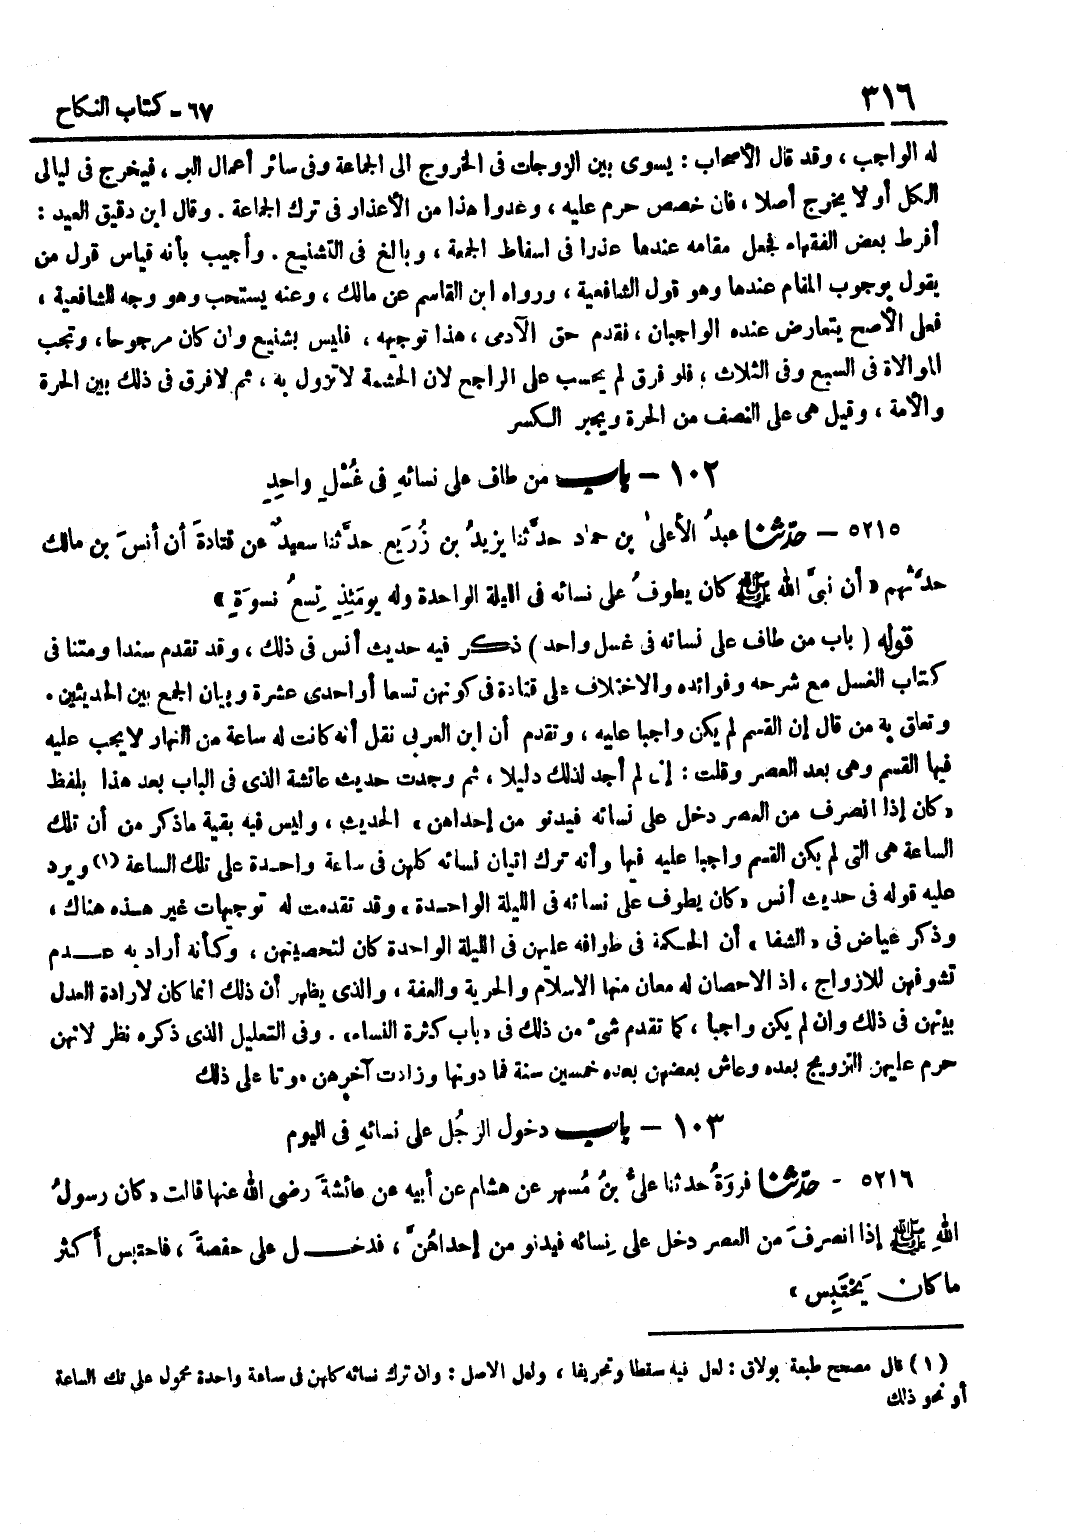 ٣١٦
٦٧ - كتاب النكاح
له الواجب ، وقد قال الأصحاب : يسوى بين الزوجات فى الخروج الى الجماعة وفى سائر أعمال البر ، فيخرج فى ليالى
الكل أو لا يخرج أصلا ، فان خصص حرم عليه ، وعدوا هذا من الأعذار فى ترك الجماعة . وقال ابن دقيق العيد :
أفرط بعض الفقهاء فجعل مقامه عندها عذرا فى اسقاط الجمعة ، وبالغ فى التشنيع . وأجيب بأنه قياس قول من
يقول بوجوب المقام عندها وهو قول الشافعية ، ورواه ابن القاسم عن مالك ، وعنه يستحب وهو وجه للشافعية ،
فعلى الأصح يتعارض عنده الواجبان ، فقدم حق الآدمى ، هذا توجيهه ، فليس بشنيع وان كان مرجوحا ، وتجب
الموالاة فى السبع وفى الثلاث ، فلو فرق لم يحسب على الراجح لان الحشمة لا تزول به ، ثم لا فرق فى ذلك بين الحرة
والأمة ، وقيل هى على النصف من الحرة ويجبر الكسر
١٠٢ - باب من طاف على نسائهِ فى غُسْلٍ واحِدٍ
٥٢١٥ - حدّثنا عبدُ الأعلىٰ بن حماد حدَّثنا يزيدُ بن زُرَيع حدَّثنا سعيدٌ عن قتادةَ أن أنسَ بن مالك
حدَّثهم « أن نبىَّ الله ﷺ كان يطوفُ على نسائه فى الليلة الواحدة وله يومَئِذٍ تِسعُ نسوَةٍ »
قوله ( باب من طاف على نسائه فى غسل واحد ) ذكر فيه حديث أنس فى ذلك ، وقد تقدم سندا ومتنا فى
كتاب الغسل مع شرحه وفوائده والاختلاف على قتادة فى كونهن تسعا أو احدى عشرة وبيان الجمع بين الحديثين .
وتعلق به من قال إن القسم لم يكن واجبا عليه ، وتقدم أن ابن العربى نقل أنه كانت له ساعة من النهار لا يجب عليه
فيها القسم وهى بعد العصر وقلت : إنى لم أجد لذلك دليلا ، ثم وجدت حديث عائشة الذى فى الباب بعد هذا بلفظ
« كان إذا انصرف من العصر دخل على نسائه فيدنو من إحداهن » الحديث ، وليس فيه بقية ما ذكر من أن تلك
الساعة هى التى لم يكن القسم واجبا عليه فيها وأنه ترك اتيان نسائه كلهن فى ساعة واحدة على تلك الساعة (١) ويرد
عليه قوله فى حديث أنس « كان يطوف على نسائه فى الليلة الواحدة » وقد تقدمت له توجيهات غير هذه هناك ،
وذكر عياض فى « الشفا » أن الحكمة فى طوافه عليهن فى الليلة الواحدة كان لتحصينهن ، وكأنه أراد به عدم
تشوفهن للازواج ، اذ الاحصان له معان منها الاسلام والحرية والعفة ، والذى يظهر أن ذلك انما كان لارادة العدل
بينهن فى ذلك وان لم يكن واجبا ، كما تقدم شىء من ذلك فى « باب كثرة النساء » . وفى التعليل الذى ذكره نظر لانهن
حرم عليهن التزويج بعده وعاش بعضهن بعده خمسين سنة فما دونها وزادت آخرهن موتا على ذلك
١٠٣ - باب دخول الرجُل على نسائهِ فى اليوم
٥٢١٦ - حدّثنا فروَةُ حدثنا علىُّ بنُ مُسهر عن هشام عن أبيه عن عائشةَ رضى الله عنها قالت « كان رسولُ
اللهِ ﷺ إذا انصرفَ من العصر دخل على نِسائه فيدنو من إحداهُنَّ ، فدخل على حفصةَ ، فاحتبس أكثر
ما كان يَحْتَبِس »
(١) قال مصحح طبعة بولاق : لعل فيه سقطا وتحريفا ، ولعل الاصل : وان ترك نسائه كلهن فى ساعة واحدة محمول على تلك الساعة
أو نحو ذلك